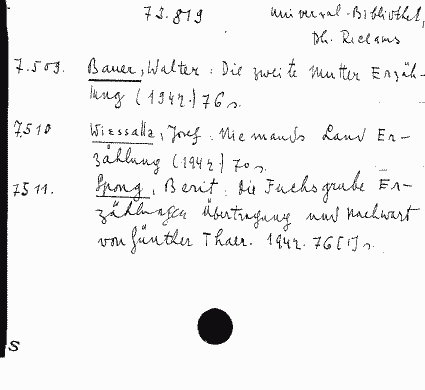 73.819 Universal-Bibliothek,
Ph. Reclams
7.509. Bauer, Walter: Die zweite Mutter Erzäh-
lung (1942.) 76 s.
7.510 Wiessalla, Josef: Niemands Land Er-
zählung (1942) 70 s.
7.511. Spong, Berit: Die Fuchsgrube Er-
zählungen Übertragung und Nachwort
von Günther Thaer. 1942. 76 [1] s.
S